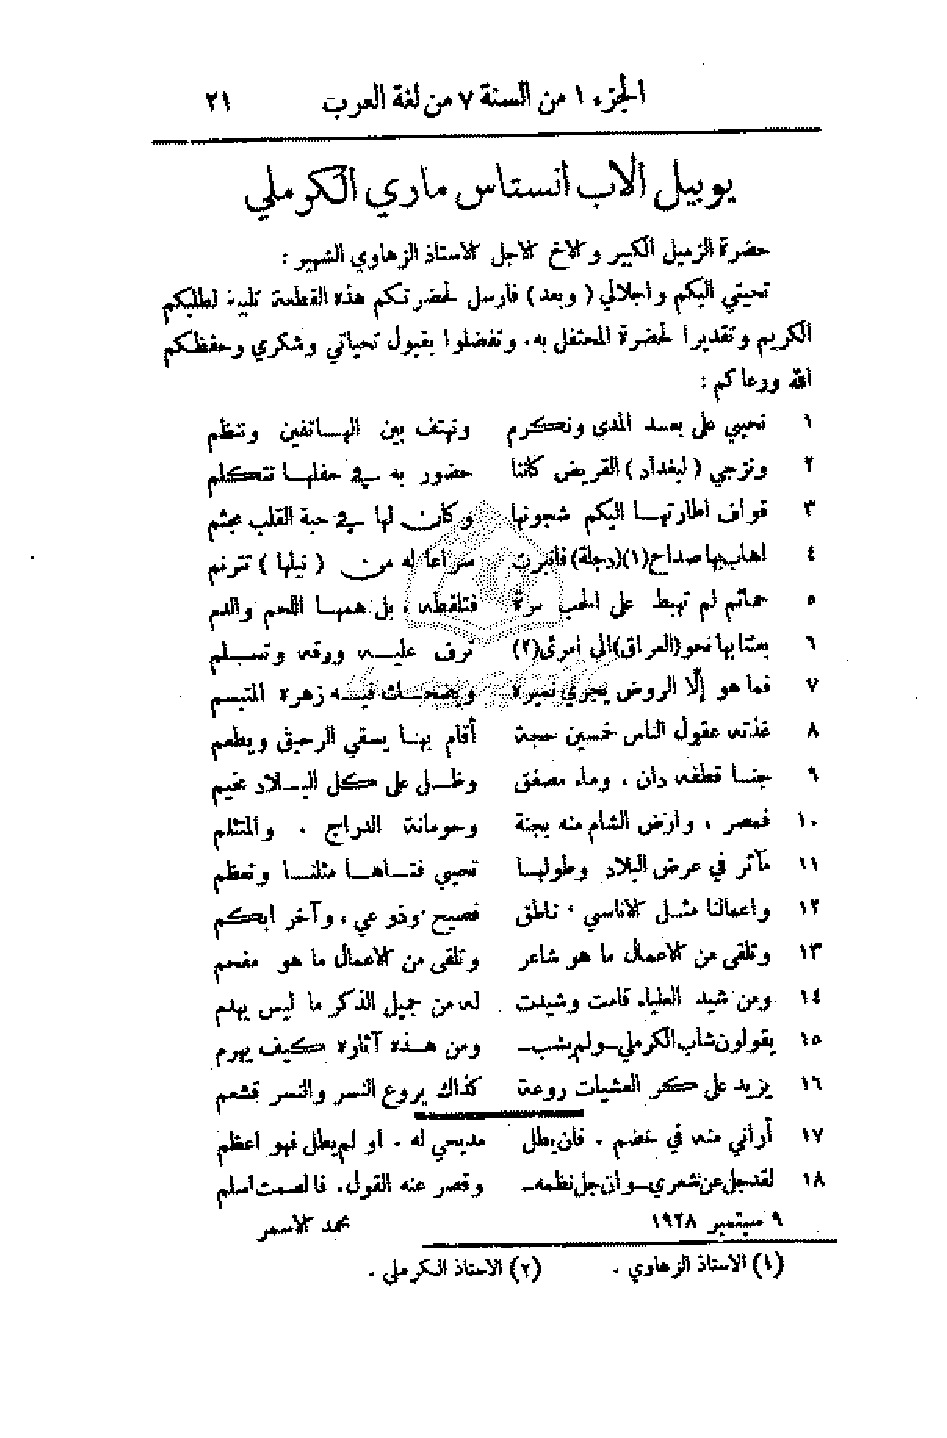 الجزء ١ من السنة ٧ من لغة العرب ٢١
يوبيل الاب انستاس ماري الكرملي
حضرة الزميل الكبير والاخ الاجل الاستاذ الزهاوي الشهير :
تحيتي اليكم واجلالي ( وبعد ) فارسل لحضرتكم هذه القطعة تلبية لطلبكم
الكريم وتقديرا لحضرة المحتفل به . وتفضلوا بقبول تحياتي وشكري وحفظكم
الله ورعاكم :
١ نحيي على بعد المدى ونكرم ونهتف بين الهاتفين وننظم
٢ ونزجي ( لبغداد ) القريض كاننا حضور به في حفلها نتكلم
٣ قواف اطارتها اليكم شجونها وكان لها في حبة القلب مجثم
٤ اهاب بها صداح (١) (دجلة) فانبرت سراعا له من ( نيلها ) تترنم
٥ حمائم لم تهبط على الحب مرة فتلقطه ، بل همها اللحم والدم
٦ بعثنا بها نحو (العراق) الى امرئ (٢) ترف عليه ورقه وتسلم
٧ فما هو إلّا الروض يجري نميره ويضحك فيه زهره المتبسم
٨ غذته عقول الناس خمسين حجة أقام بها يسقي الرحيق ويطعم
٩ جنا قطفه دان ، وماء مصفق وظل على كل البلاد مخيم
١٠ فمصر ، وارض الشام منه بجنة وحومانة الدراج ، والمتثلم
١١ مآثر في عرض البلاد وطولها تحيي فتاها مثلنا وتعظم
١٢ واعمالنا مثل الاناسي ، ناطق فصيح ، وذو عي ، وآخر ابكم
١٣ وتلقى من الاعمال ما هو شاعر وتلقى من الاعمال ما هو مفحم
١٤ ومن شيد العلياء قامت وشيدت له من جميل الذكر ما ليس يهدم
١٥ يقولون شاب الكرملي ـ ولم يشب ـ ومن هذه آثاره كيف يهرم
١٦ يزيد على كر العشيات روعة كذاك يروع النسر والنسر قشعم
١٧ أراني منه في خضم ، فان يطل مديحي له ، او لم يطل فهو اعظم
١٨ لقد جل عن شعري ـ وان جل نظمه ـ وقصر عنه القول ، فالصمت اسلم
٩ سبتمبر ١٩٢٨ محمد الاسمر
(١) الاستاذ الزهاوي . (٢) الاستاذ الكرملي .